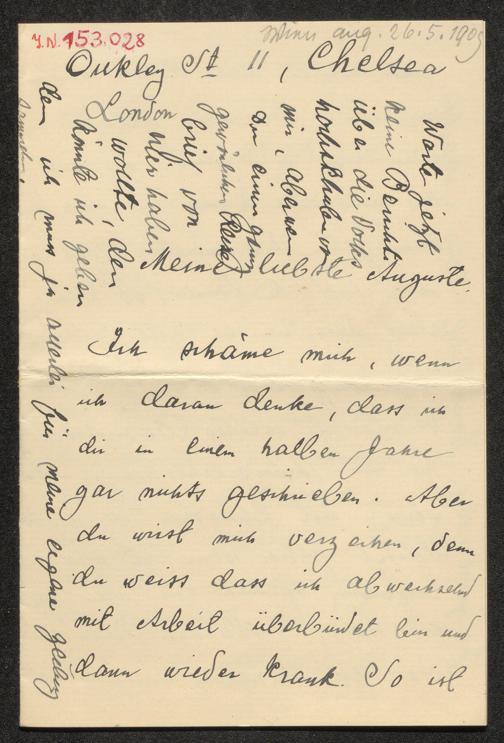 J.N. 153.028
aug. 26.5.190
Oakley St 11, Chelsea
London
Meine liebste Auguste.
Ich schäme mich, wenn
ich daran denke, dass ich
dir in einem halben Jahre
gar nichts geschrieben. Aber
du wirst mich verzeihen, denn
du weiss dass ich abwechselnd
mit Arbeit überbürdet bin und
dann wieder krank. So ist
Warte jetzt
keine Bericht
über die Volks
hochschule von
mir. Aber wenn
Du einen ganz
gewöhnlichen
brief von
mir haben
wollte, den
könnte ich geben
den ich muss ja allerlei für meine eigene